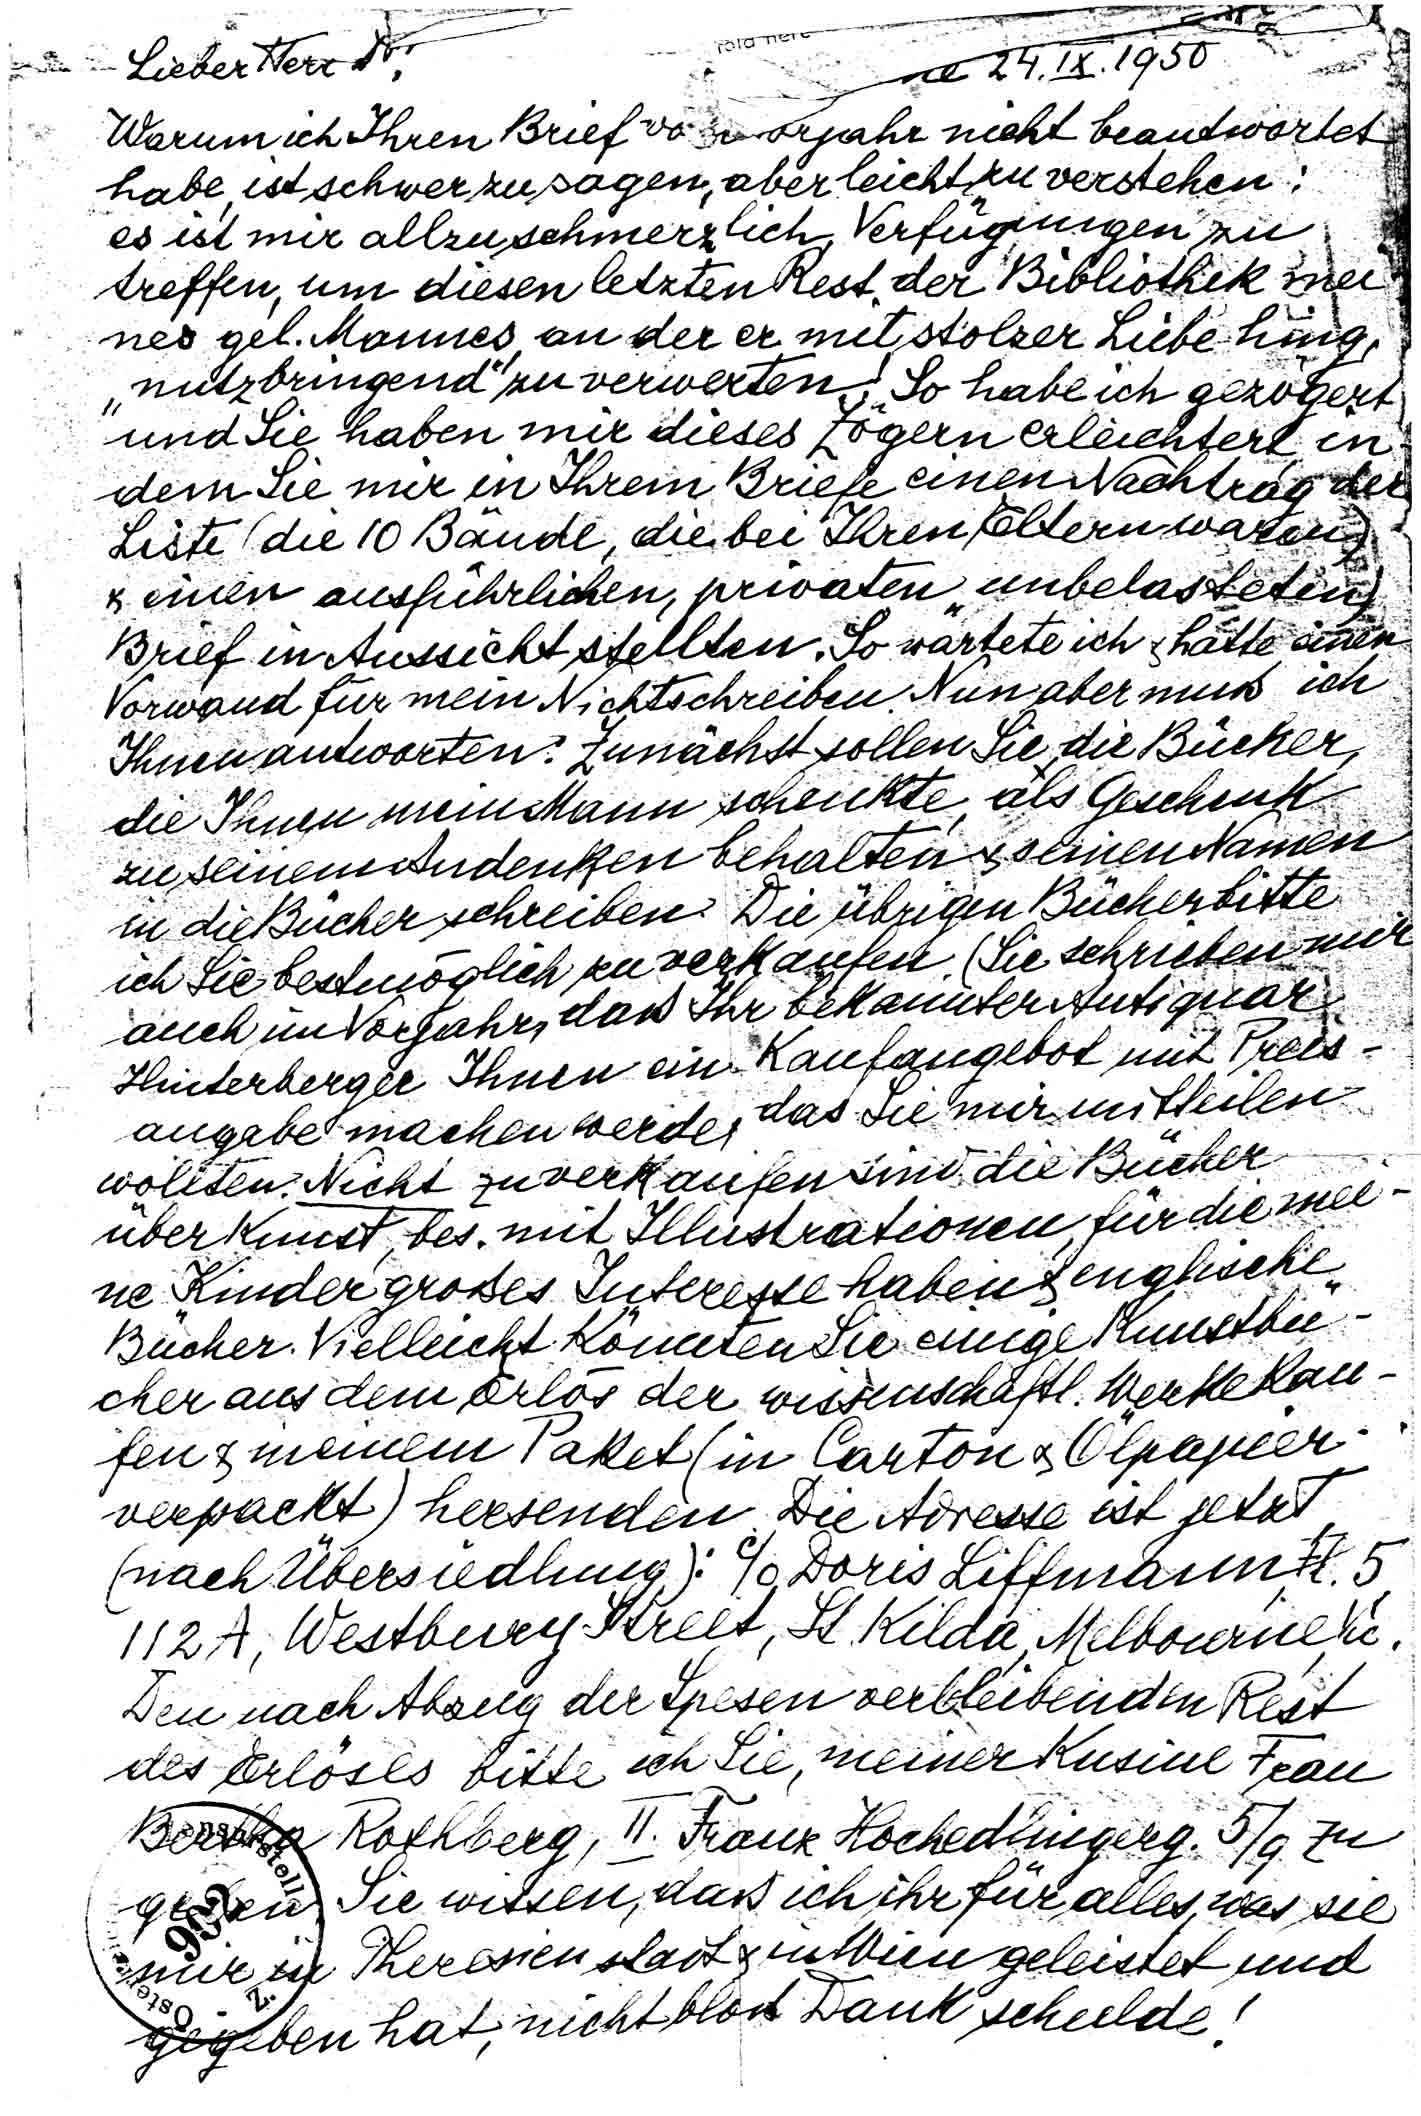 fold here
Lieber Herr Dr!
ne 24.IX.1950
Warum ich Ihren Brief vorjahr nicht beantwortet
habe, ist schwer zu sagen, aber leicht zu verstehen:
es ist mir allzu schmerzlich, Verfügungen zu
treffen, um diesen letzten Rest der Bibliothek mei
nes gel. Mannes, an der er mit stolzer Liebe hing,
„nutzbringend" zu verwerten! So habe ich gezögert
und Sie haben mir dieses Zögern erleichtert in-
dem Sie mir in Ihrem Briefe einen Nachtrag der
Liste (die 10 Bände, die bei Ihren Eltern waren)
& einen ausführlichen, privaten „unbelasteten"
Brief in Aussicht stellten. So wartete ich & hatte einen
Vorwand für mein Nichtschreiben. Nun aber muß ich
Ihnen antworten: Zunächst sollen Sie die Bücher,
die Ihnen mein Mann schenkte, als Geschenk
zu seinem Andenken behalten & seinen Namen
in die Bücher schreiben. Die übrigen Bücher bitte
ich Sie bestmöglich zu verkaufen. (Sie schrieben mir
auch im Vorjahr, daß Ihr bekannter Antiquar
Hinterberger Ihnen ein Kaufangebot mit Preis-
angabe machen werde, das Sie mir mitteilen
wollten. Nicht zu verkaufen sind die Bücher
über Kunst, bes. mit Illustrationen, für die mei-
ne Kinder großes Interesse haben & englische
Bücher. Vielleicht könnten Sie einige Kunstbü-
cher aus dem Erlös der wissenschaftl. Werke kau-
fen & meinem Paket (in Carton & Ölpapier
verpackt) hersenden. Die Adresse ist jetzt
(nach Übersiedlung): c/o Doris Liffmann, Fl. 5
112 A, Westbury Street, St. Kilda, Melbourne, Vic.
Den nach Abzug der Spesen verbleibenden Rest
des Erlöses bitte ich Sie, meiner Kusine Frau
Bertha Rothberg, II. Franz Hochedlingerg. 5/9 zu
geben. Sie wissen, daß ich ihr für alles, was sie
mir in Theresienstadt & in Wien geleistet und
gegeben hat, nicht bloß Dank schulde!
932